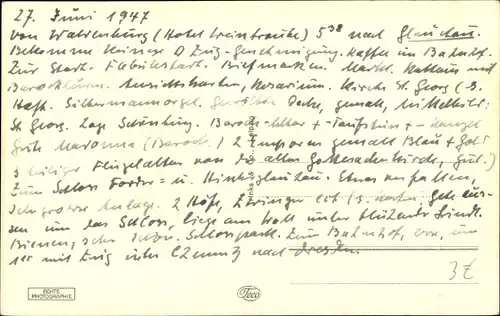 27. Juni 1947
von Waldenburg (Hotel Weintraube) 5³⁸ nach Glauchau.
Bekomme keine D Zug-Genehmigung. Kaffee im Bahnhof.
Zur Stadt. Fabrikstadt. Briefmarken. Markt. Rathaus mit
Barockturm. Ansichtskarten, Rosarium. Kirche St. Georg (3.
Silbermannorgel. Gewölbte Decke, gemalt, Mittelbild:
St Georg. Barock-Altar + Taufstein + Kanzel
Gute Madonna (Barock.) 2 Emporen gemalt Blau + Gold
3 teiliger Flügelaltar von der alten Gottesackerkirche, gut.)
Zum Schloss Forder- u. Hinterglauchau. Etwas verfallen,
Sehr grosse Anlage. 2 Höfe, Zwinger
um das Schloss, am Wall unter blühender Linde.
Bienen, sehr schön. Schlosspark. Zum Bahnhof, um
mit Zug über Chemnitz nach Dresden.
3 €
ECHTE
PHOTOGRAPHIE
Teco